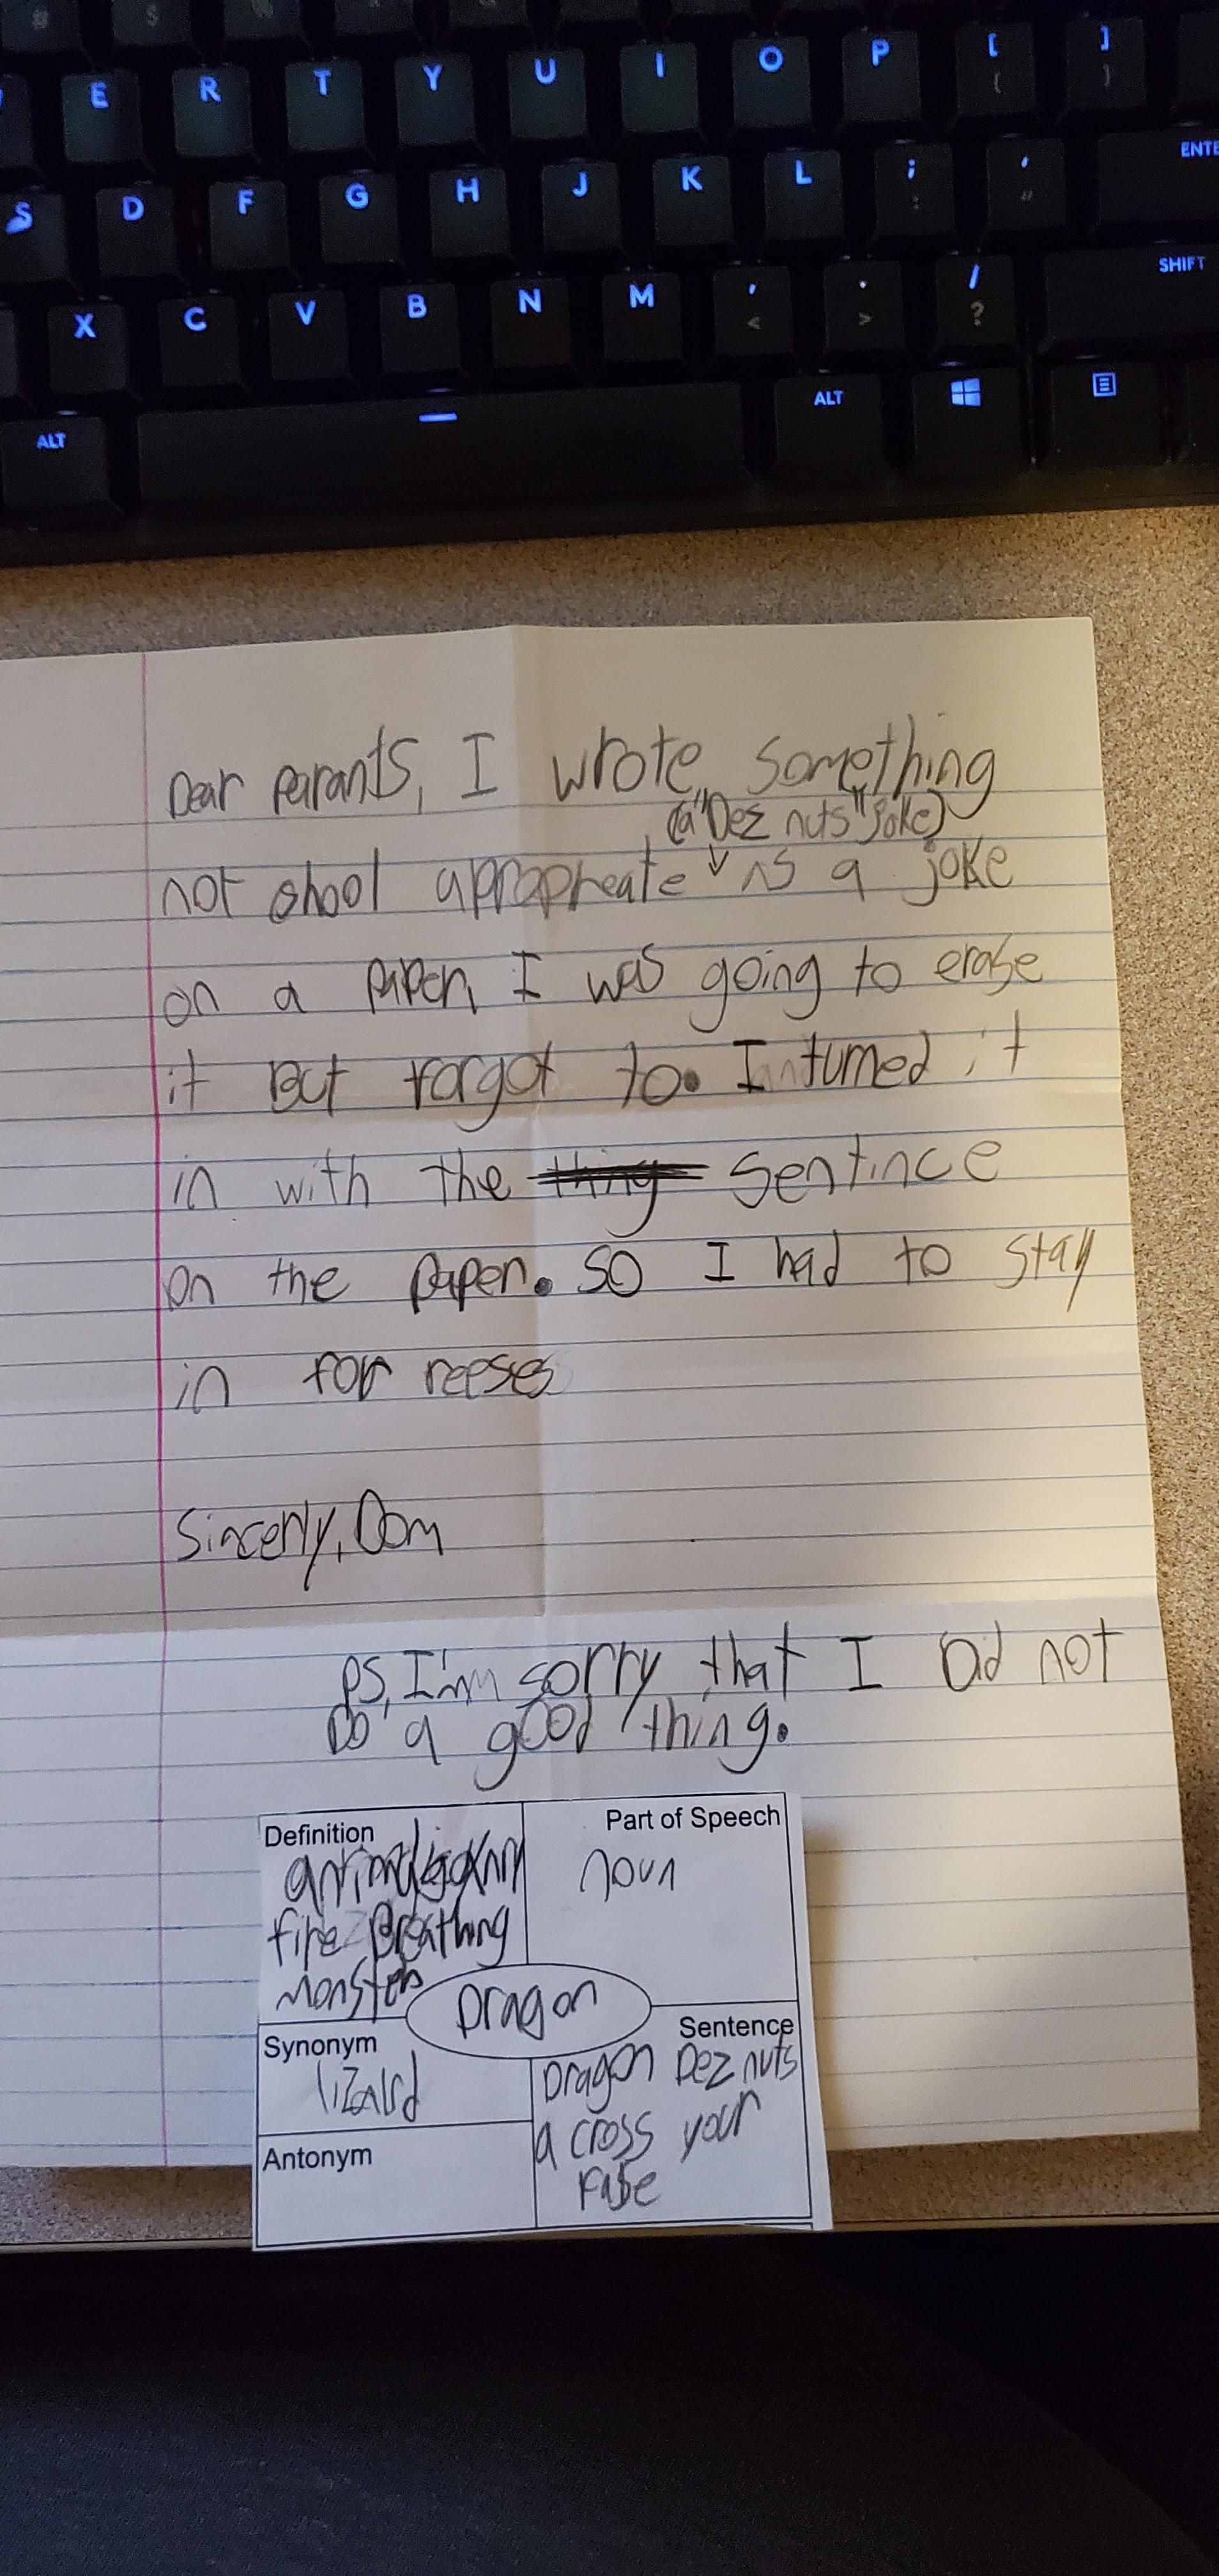 E R T Y U I O P [ ]
{ }
S D F G H J K L ; '
: "
ENTE
X C V B N M , . /
< > ?
SHIFT
ALT ALT
Dear parants, I wrote something
(a "Dez nuts" joke)
not shool appropreate as a joke
on a paper, I was going to erase
it But forgot to. I turned it
in with the thing sentince
on the paper. so I had to stay
in for reeses
Sincerly, Dom
PS, I'm sorry that I Did not
Do a good thing.
Definition
fire Breathing
Monster
Part of Speech
noun
Dragon
Synonym
lizard
Sentence
Dragon Dez nuts
a cross your
fase
Antonym